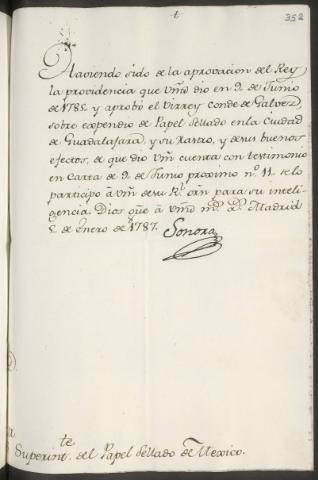 352
Haviendo sido de la aprovacion del Rey
la providencia que Vmd dio en 9. de Junio
de 1785. y aprobó el Virrey Conde de Galvez,
sobre expendio de Papel Sellado en la Ciudad
de Guadalaxara, y su Rastro, y de sus buenos
efectos, de que dio Vm̃ cuenta con testimonio
en Carta de 9. de Junio proximo nº. 11. se lo
participo á Vm̃ de su Rl. orñ para su inteli
gencia. Dios gũe á Vmd ms. as. Madrid
2. de enero de 1787. Sonora
Superintte. del Papel Sellado de Mexico.